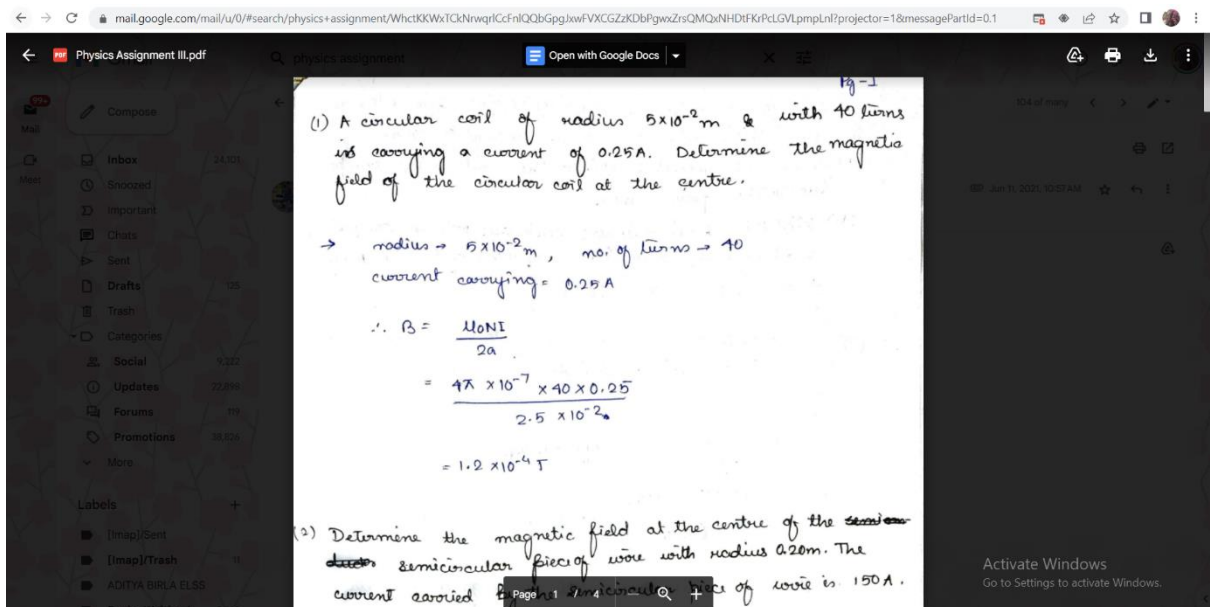 mail.google.com/mail/u/0/#search/physics+assignment/WhctKKWxTCkNrwqrlCcFnlQQbGpgJxwFVXCGZzKDbPgwxZrsQMQxNHDtFKrPcLGVLpmpLnl?projector=1&messagePartId=0.1
PDF Physics Assignment III.pdf
physics assignment
Open with Google Docs
99+
Mail
Meet
Compose
104 of many
Inbox 24,101
Snoozed
Important
Chats
Sent
Drafts 125
Trash
Categories
Social 9,232
Updates 22,899
Forums 119
Promotions 38,826
More
Labels
[Imap]/Sent
[Imap]/Trash 11
ADITYA BIRLA ELSS
Jun 11, 2021, 10:57 AM
Pg-1
(1) A circular coil of radius 5×10⁻²m & with 40 turns
is carrying a current of 0.25A. Determine the magnetic
field of the circular coil at the centre.
→ radius → 5×10⁻²m, no. of turns → 40
current carrying = 0.25A
∴ B = μ₀NI
2a
= 4π ×10⁻⁷ × 40 × 0.25
2.5 ×10⁻²
= 1.2 ×10⁻⁴ T
(2) Determine the magnetic field at the centre of the
semicircular piece of wire with radius 0.20m. The
current carried by the semicircular piece of wire is 150A.
Page 1 / 4
Activate Windows
Go to Settings to activate Windows.